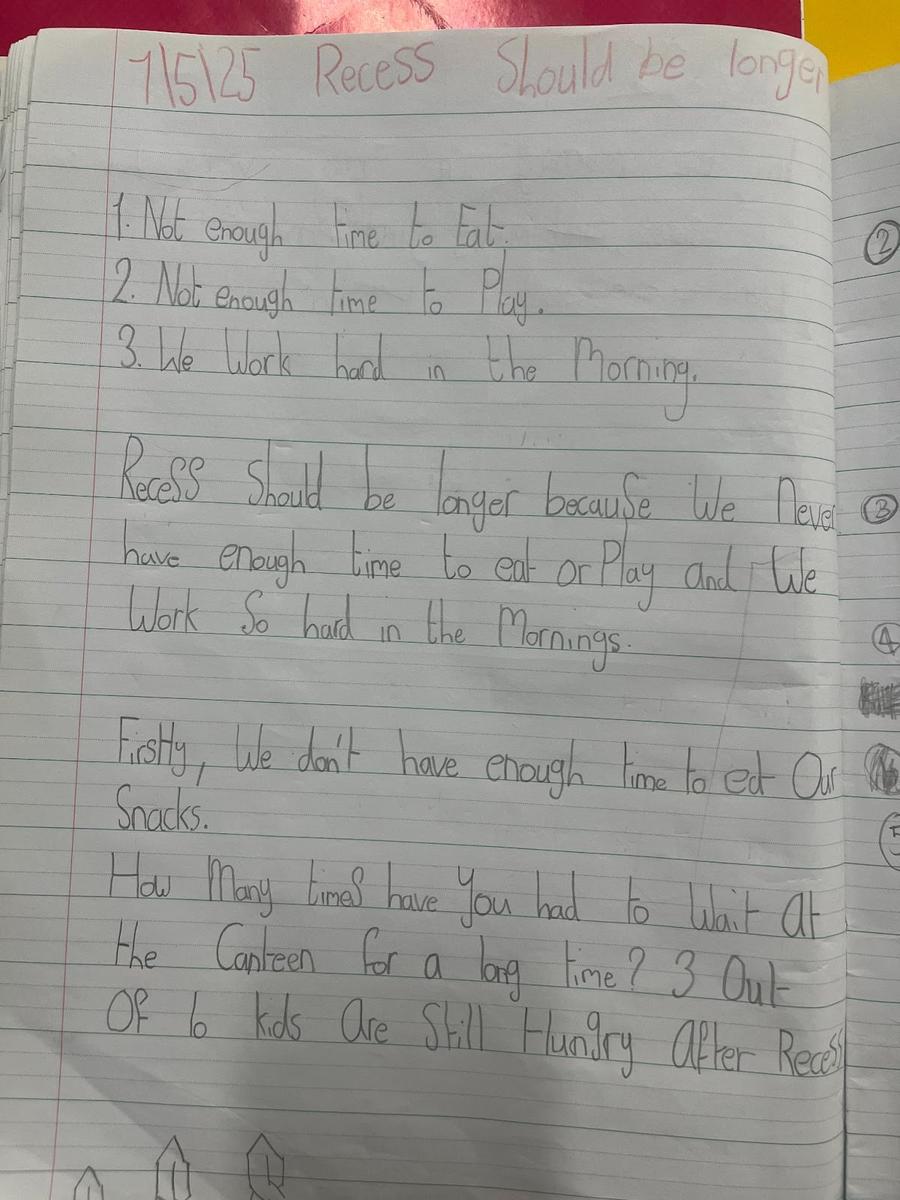 7\5\25 Recess Should be longer
1. Not enough time to Eat.
2. Not enough time to Play.
3. We Work hard in the Morning.
Recess Should be longer because We Never
have enough time to eat or Play and We
Work So hard in the Mornings.
Firstly, We don't have enough time to eat Our
Snacks.
How Many times have you had to Wait At
the Canteen for a long time? 3 Out
Of 6 kids Are Still Hungry After Recess
2
3
4